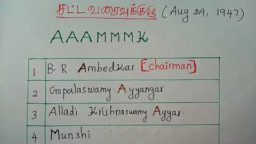 சட்டவரைவுக்குழு (Aug 29, 1947)
AAAMMMK
1 B. R. Ambedkar [chairman]
2 Gopalaswamy Ayyangar
3 Alladi Krishnaswamy Ayyar.
4 Munshi